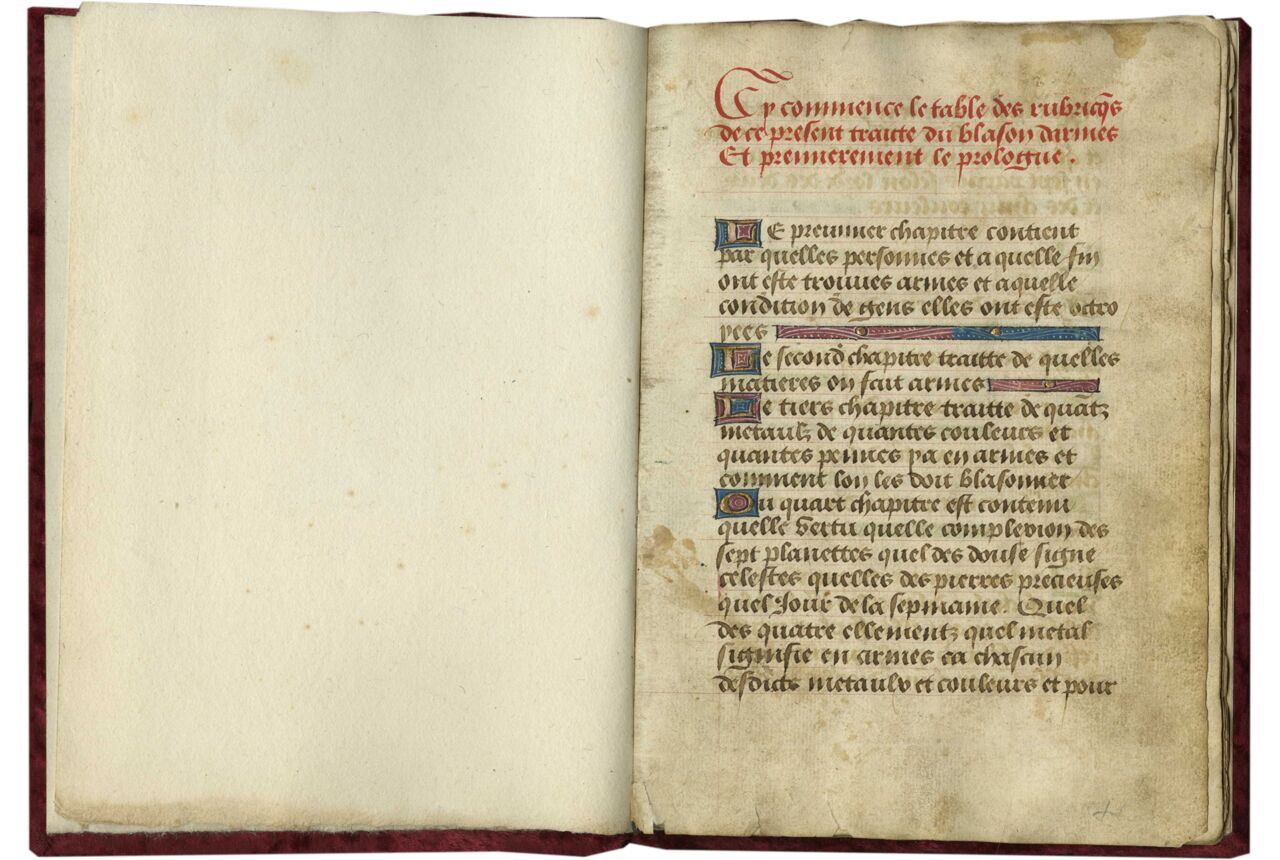 Cy commence le table des rubricqs
de ce present traitte du blason darmes
Et premierement le prologue .
LE premier chapitre contient
par quelles personnes et a quelle fin
ont este trouues armes et a quelle
condition de gens elles ont este octro
yees
Le second chapitre traitte de quelles
matieres on fait armes
Le tiers chapitre traitte de quātz
metaulz de quantes couleurs et
quantes pennes ya en armes et
comment lon les doit blasonner
Ou quart chapitre est contenu
quelle vertu quelle complexion des
sept planettes quel des douse signe
celestes quelles des pierres precieuses
quel Jour de la sepmaine . Quel
des quatre ellementz quel metal
signifie en armes ca chascun
desdicts metaulx et couleurs et pour